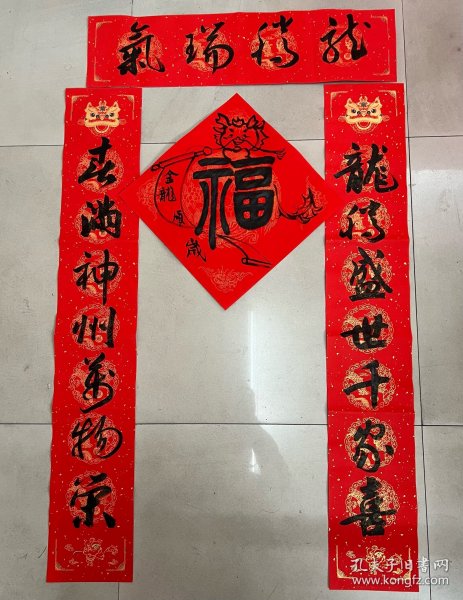 龍騰瑞氣
龍騰盛世千家喜
春滿神州萬物榮
福
金龍賀歲
孔夫子旧书网
www.kongfz.com